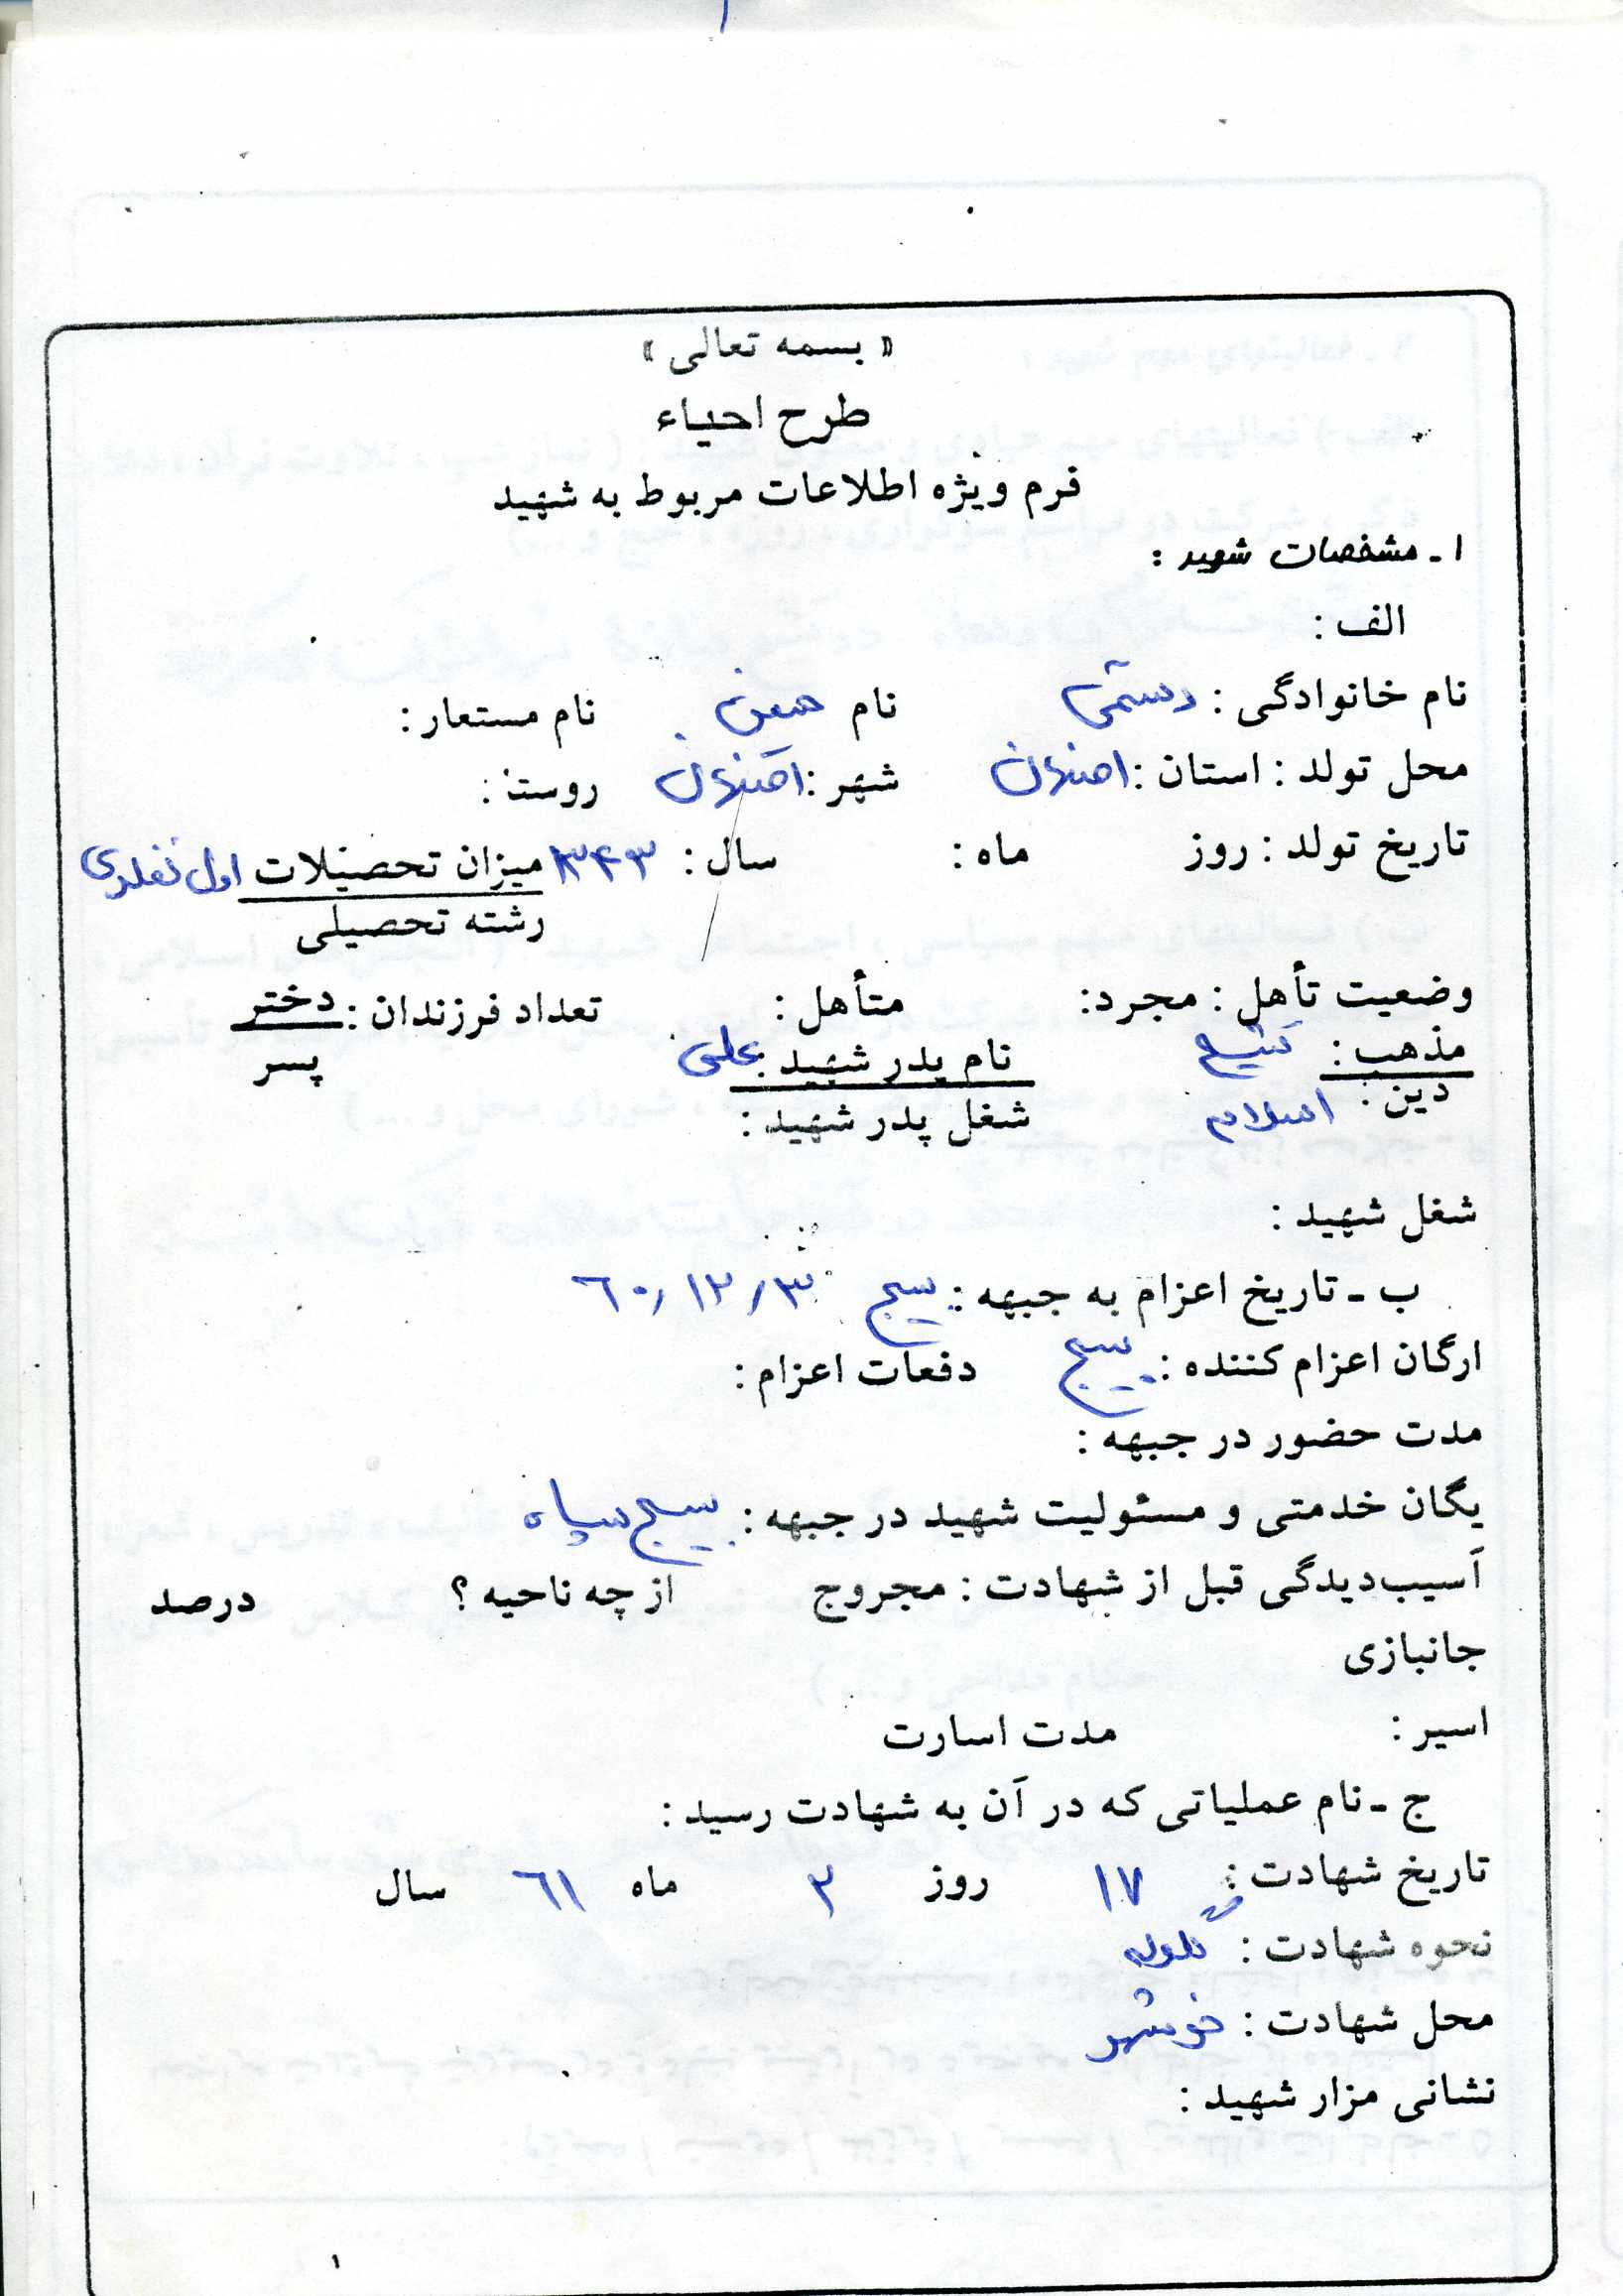 « بسمه تعالی »
طرح احیاء
فرم ویژه اطلاعات مربوط به شهید
۱ ـ مشخصات شهید :
الف :
نام خانوادگی : رستمی نام نام مستعار :
محل تولد : استان : اصفهان شهر : اصفهان روستا :
تاریخ تولد : روز ماه : سال : ۱۳۴۳ میزان تحصیلات اول نظری
رشته تحصیلی
وضعیت تأهل : مجرد: متأهل : تعداد فرزندان : دختر
پسر
مذهب : تشیع نام پدر شهید : علی
دین : اسلام شغل پدر شهید :
شغل شهید :
ب ـ تاریخ اعزام به جبهه : بسیج ۶۰/۱۲/۳
ارگان اعزام کننده : بسیج دفعات اعزام :
مدت حضور در جبهه :
یگان خدمتی و مسئولیت شهید در جبهه : بسیج سپاه
آسیب‌دیدگی قبل از شهادت : مجروح از چه ناحیه ؟ درصد
جانبازی
اسیر : مدت اسارت
ج ـ نام عملیاتی که در آن به شهادت رسید :
تاریخ شهادت : ۱۷ روز ۲ ماه ۶۱ سال
نحوه شهادت : گلوله
محل شهادت : خرمشهر
نشانی مزار شهید :
۱